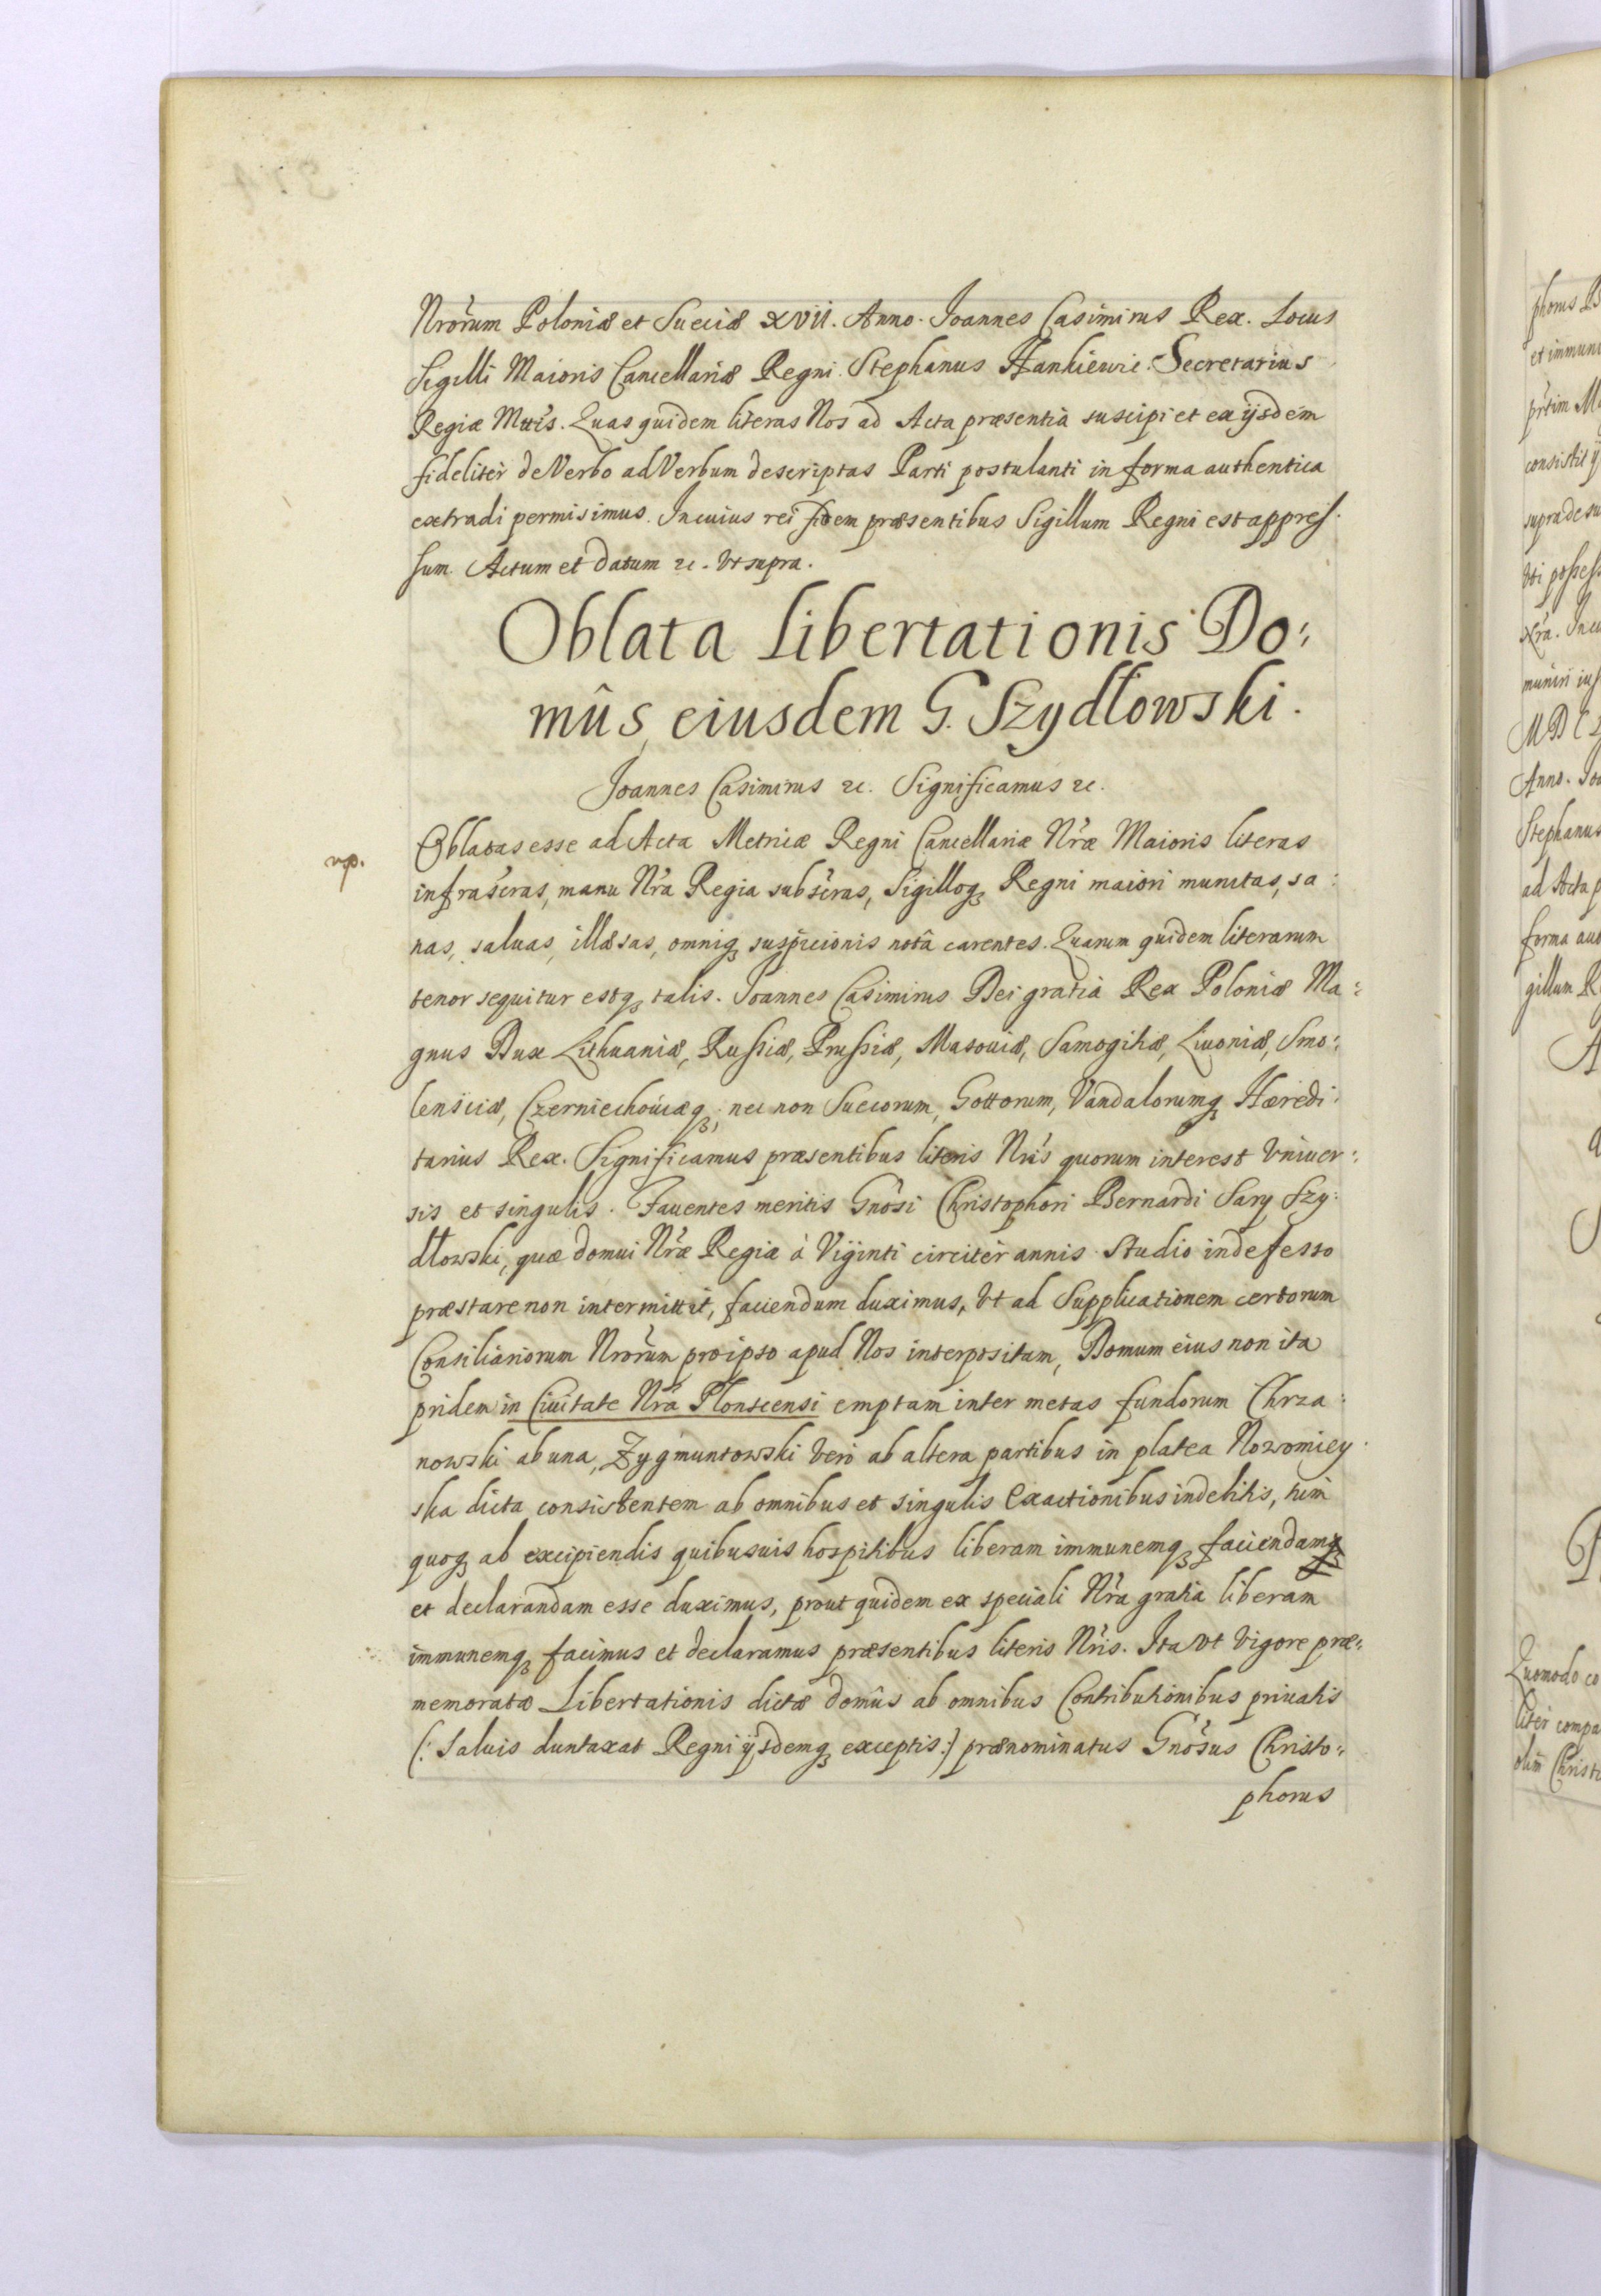 Nrōrum Poloniæ et Sueciæ XVII. Anno. Joannes Casimirus Rex. Locus
Sigilli Maioris Cancellariæ Regni. Stephanus Hankiewic. Secretarius
Regiæ Mttis. Quas quidem literas Nos ad Acta præsentia suscipi et ex ijsdem
fideliter de Verbo ad Verbum descriptas Parti postulanti in forma authentica
extradi permisimus. In cuius rei fidem præsentibus Sigillum Regni est appres:
sum. Actum et datum &c. Vt supra.
Oblata Libertationis Do:
mûs eiusdem G. Szydłowski.
Joannes Casimirus &c. Significamus &c.
Oblatas esse ad Acta Metricæ Regni Cancellariæ Nræ Maioris literas
infrascras, manu Nra Regia subscras, Sigilloq3 Regni maiori munitas, sa:
nas, saluas, illæsas, omniq3 suspicionis notâ carentes. Quarum quidem literarum
tenor sequitur estq3 talis. Joannes Casimirus Dei gratia Rex Poloniæ Ma:
gnus Dux Lithuaniæ, Russiæ, Prussiæ, Masouiæ, Samogitiæ, Liuoniæ, Smo:
lensciæ, Czerniechouiæq3, nec non Suecorum, Gottorum, Vandalorumq3 Hæredi:
tarius Rex. Significamus præsentibus literis Nris quorum interest Vniuer:
sis et singulis. Fauentes meritis Gnosi Christophori Bernardi Sary Szy:
dłowski, quæ domui Nræ Regiæ à Viginti circiter annis Studio indefesso
præstare non intermittit, faciendum duximus, Vt ad Supplicationem certorum
Consiliariorum Nrorum pro ipso apud Nos interpositam, Domum eius non ita
pridem in Ciuitate Nra Plonscensi emptam inter metas fundorum Chrza:
nowski ab una, Zygmuntowski Vero ab altera partibus in platea Nowomiey:
ska dicta consistentem ab omnibus et singulis Exactionibus indebitis, tum
quoq3 ab excipiendis quibusuis hospitibus liberam immunemq3 faciendam
et declarandam esse duximus, prout quidem ex speciali Nra gratia liberam
immunemq3 facimus et declaramus præsentibus literis Nris. Ita Vt Vigore præ:
memoratæ Libertationis dictæ domûs ab omnibus Contributionibus priuatis
(: Saluis duntaxat Regni ijsdemq3 exceptis:) prænominatus Gnosus Christo:
phorus